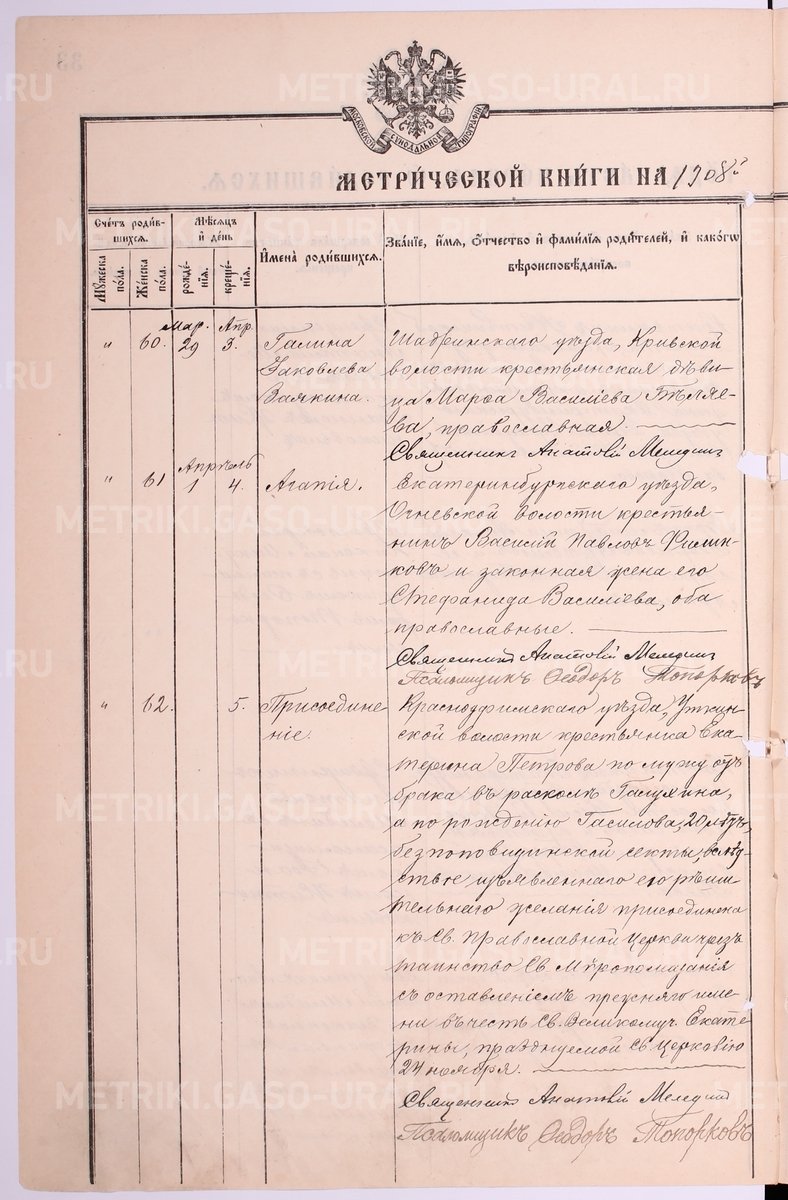 МОСКОВСКОЙ СѴНОДАЛЬНОЙ ТИПОГРАФІИ
МЕТРИ́ЧЕСКОЙ КНИ́ГИ НА 1908й
Сче́тъ роди́в-
шихсѧ.
Мѣ́сѧцъ
и҆ де́нь
И҆мена̀ роди́вшихсѧ.
Зва́нїе, и҆́мѧ, ѻ҆́тчество и҆ фами́лїѧ роди́телей, и҆ како́гѡ
вѣроисповѣ́данїѧ.
Мꙋ́жеска по́ла.
Же́нска по́ла.
рожде́-
нїѧ.
креще́-
нїѧ.
Мар. Апр.
" 60. 29 3. Галина Шадринскаго уѣзда, Кривской
Іаковлева волости крестьянская дѣви-
Заякина. ца Марѳа Василіева Бѣляе-
ва, православная.
Священникъ Анатолій
Апрѣль
" 61 1 4. Агапія. Екатеринбургскаго уѣзда,
Огневской волости крестья-
нинъ Василій Павловъ Филин-
ковъ и законная жена его
Стефанида Василіева, оба
православные.
Священникъ Анатолій
Псаломщикъ Ѳеодоръ Топорковъ
" 62. 5. Присоедине Красноуфимскаго уѣзда, Уткин-
ніе. ской волости крестьянка Ека-
терина Петрова по мужу отъ
брака въ расколѣ Галухина,
а по рожденію Гасилова, 20 лѣтъ,
безпоповщинской секты, вслѣд-
ствіе изъявленнаго ею рѣши
тельнаго желанія присоединена
къ Св. Православной Церкви чрезъ
таинство Св. Мѵропомазанія
съ оставленіемъ прежняго име-
ни въ честь Св. Великомуч. Екате
рины, празднуемой Св. Церковію
24 ноября.
Священникъ Анатолій
Псаломщикъ Ѳеодоръ Топорковъ
METRIKI.GASO-URAL.RU